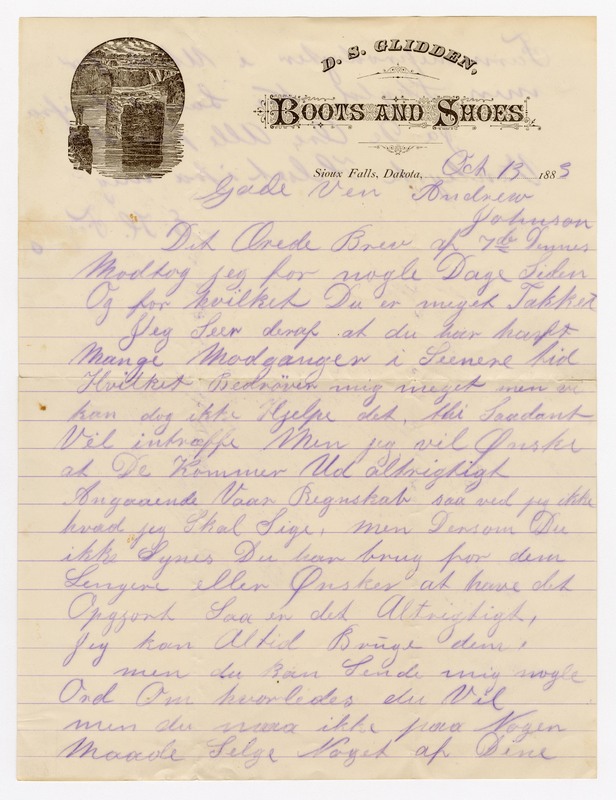 D. S. GLIDDEN,
BOOTS AND SHOES
Sioux Falls, Dakota, Oct 13 1883
Gode Ven Andrew
Johnson
Dit Ærede Brev af 7de Dennes
Modtog jeg for nogle Dage Siden
Og for hvilket Du er meget Takket
Jeg Seer deraf at du har havft
Mange Modganger i Seenere tid
Hvilket Bedrøver mig meget men vi
kan dog ikke Hjelpe det, thi Saadant
Vil intræffe Men jeg vil Ønske
at De Kommer Ud altrigtigt
Angaaende Vaar Regnskab saa ved jeg ikke
hvad jeg Skal Sige, men Dersom Du
ikke Synes Du har brug for dem
Lengere eller Ønsker at have det
Opgjort Saa er det Altrigtigt,
Jeg kan Altid Bruge dem,
men du kan Sende mig nogle
Ord Om hvorledes du Vil
men du maa ikke paa Nogen
Maade Selge Noget af Dine